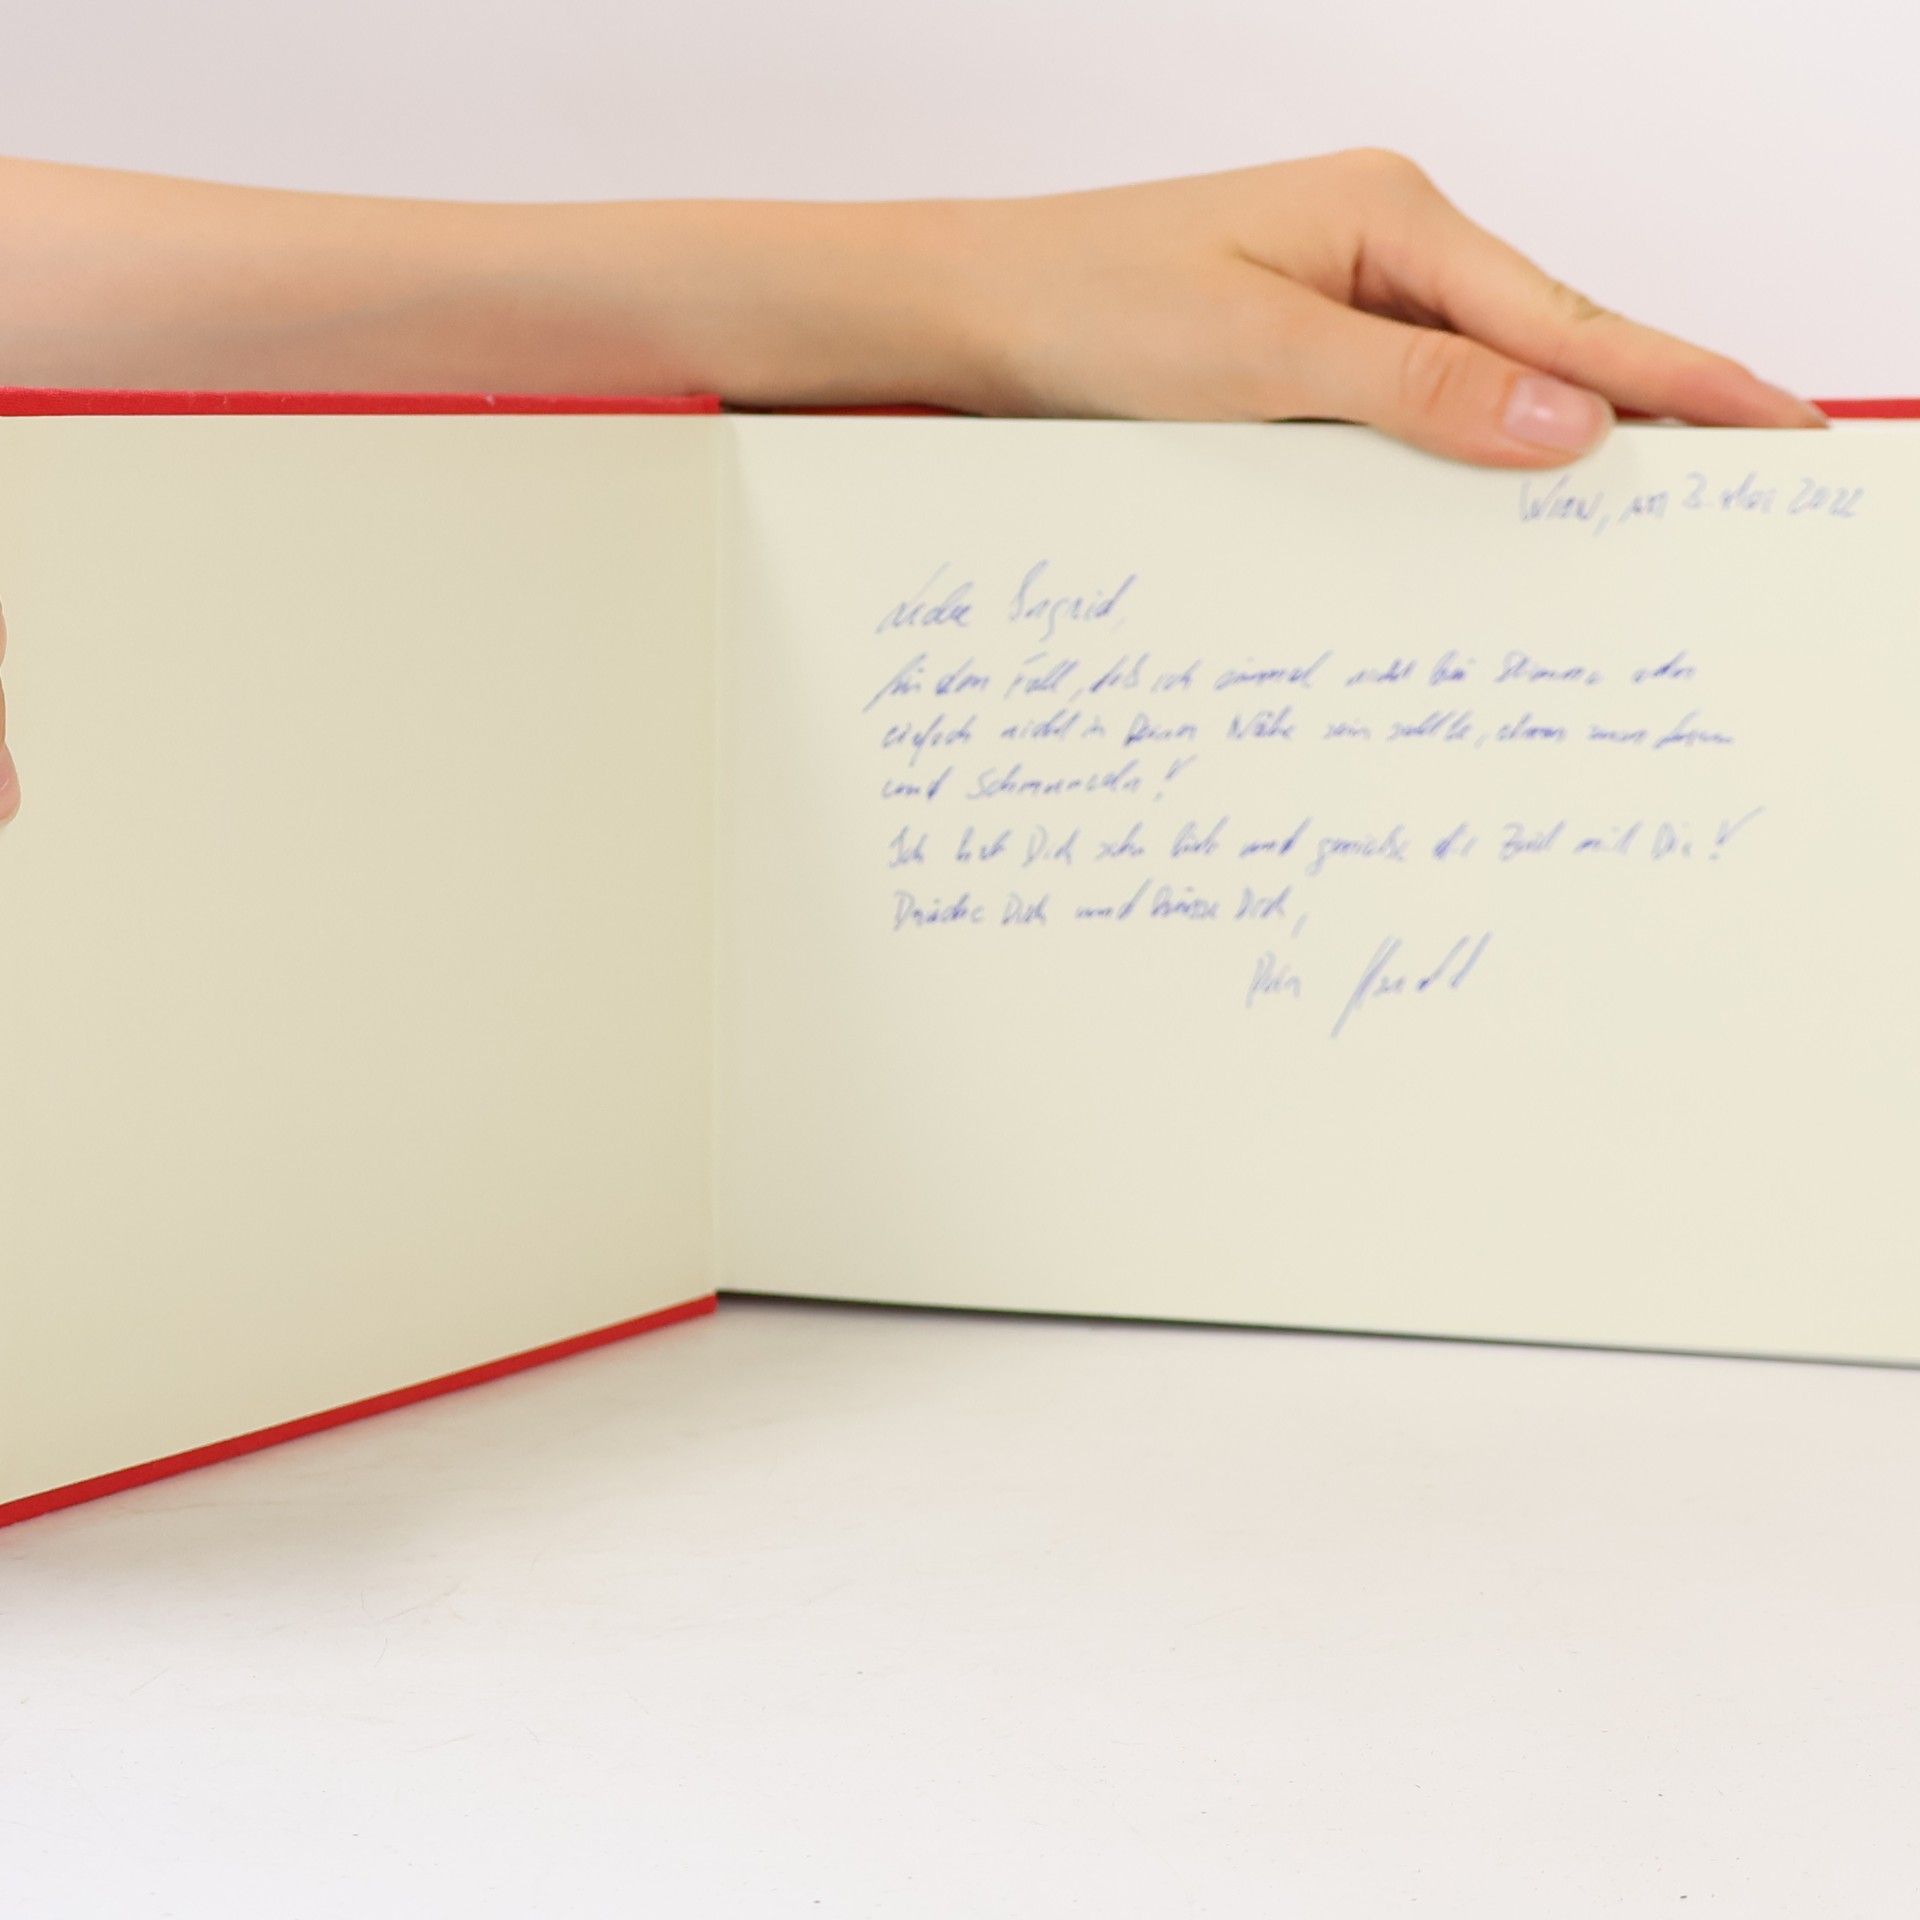 Wien, am 2. Mai 2022
Liebe Ingrid,
für den Fall, daß ich einmal nicht bei Stimme oder
einfach nicht in Deiner Nähe sein sollte, etwas zum Lesen
und Schmunzeln!
Ich hab Dich sehr lieb und genieße die Zeit mit Dir!
Drücke Dich und küsse Dich,
Dein